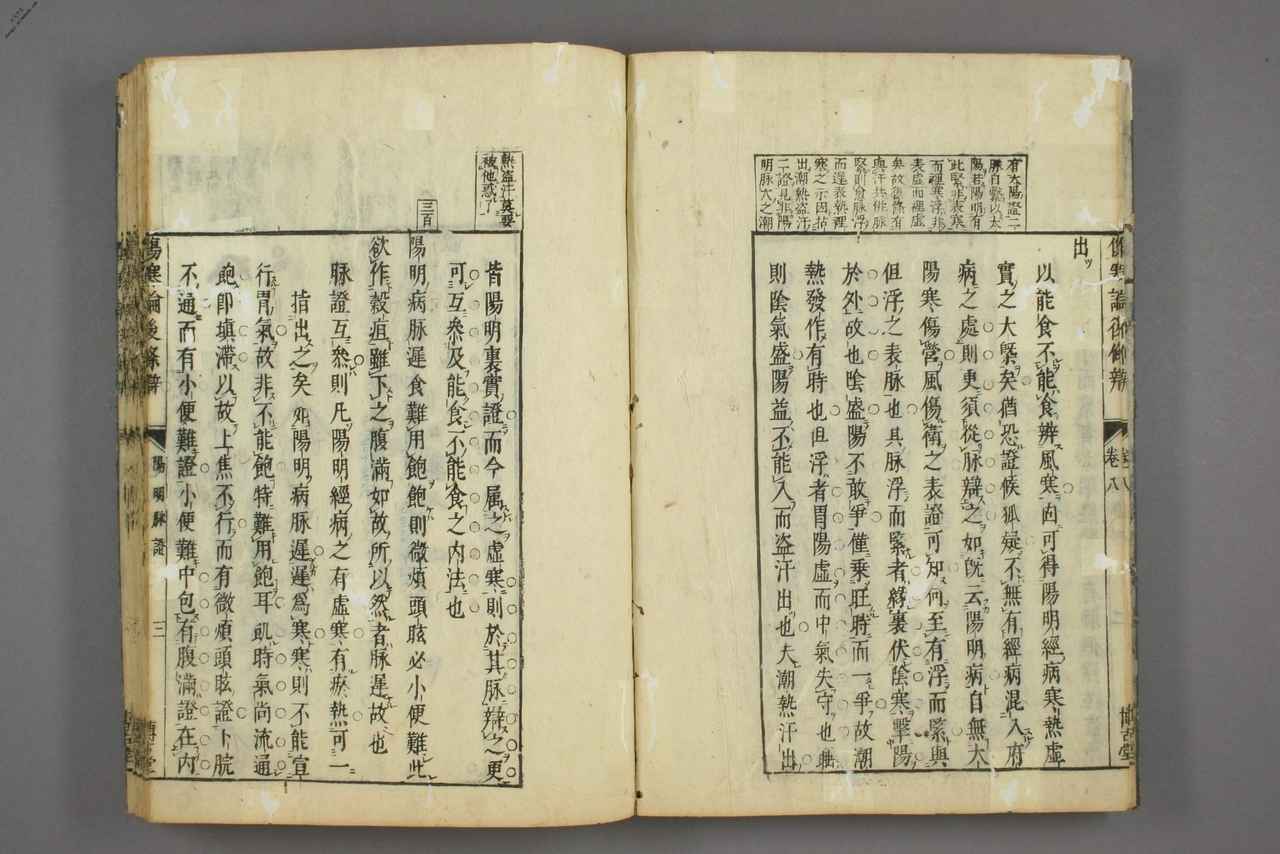 有太陽證二
脉自緊以太
陽若陽明有
此緊非表寒
而裡寒浮非
表虛而裡虛
矣故舊條有
與汗共併脉
緊則愈脉浮
而遲表熱裡
寒之示因拈
出潮熱盜汗
二證見非陽
明脉大之潮
熱盜汗莫要
被他惑了
出
以能食不能食辨風寒固可得陽明經病寒熱虛
實之大槩矣猶恐證候狐疑不無有經病混入府
病之處則更須從脉辯之如既云陽明病自無太
陽寒傷營風傷衛之表證可知何至有浮而緊與
但浮之表脉也其脉浮而緊者緣裏伏陰寒擊陽
於外故也陰盛陽不敢爭僅乗旺時而一爭故潮
熱發作有時也但浮者胃陽虛而中氣失守也
則陰氣盛陽益不能入而盜汗出也夫潮熱汗出
卷八
皆陽明裏實證而今属之虛寒則於其脉辯之更
可互叅及能食不能食之內法也
三百
陽明病脉遲食難用飽飽則微煩頭眩必小便難此
欲作穀疸雖下之腹滿如故所以然者脉遲故也
脉證互叅則凡陽明經病之有虛寒有瘀熱可一
指出之矣如陽明病脉遲遲爲寒寒則不能宣
行胃氣故非不能飽特難用飽耳飢時氣尚流通
飽卽填滯以故上焦不行而有微煩頭眩證下脘
不通而有小便難證小便難中包有腹滿證在內
傷寒論後條辯
陽明脉證
三
博古堂